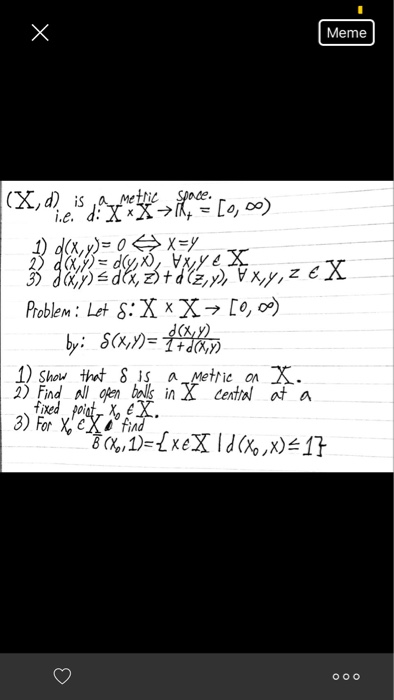 Meme
(X, d) is a metric space.
i.e. d: X × X → ℝ₊ = [0, ∞)
1) d(x,y) = 0 ⇔ x=y
2) d(x,y) = d(y,x), ∀x,y ∈ X
3) d(x,y) ≤ d(x,z) + d(z,y), ∀ x,y,z ∈ X
Problem: Let δ: X × X → [0, ∞)
by: δ(x,y) = d(x,y) / 1+d(x,y)
1) Show that δ is a metric on X.
2) Find all open balls in X central at a
fixed point x₀ ∈ X.
3) For x₀ ∈ X find
B̄(x₀,1) = {x ∈ X | d(x₀,x) ≤ 1}